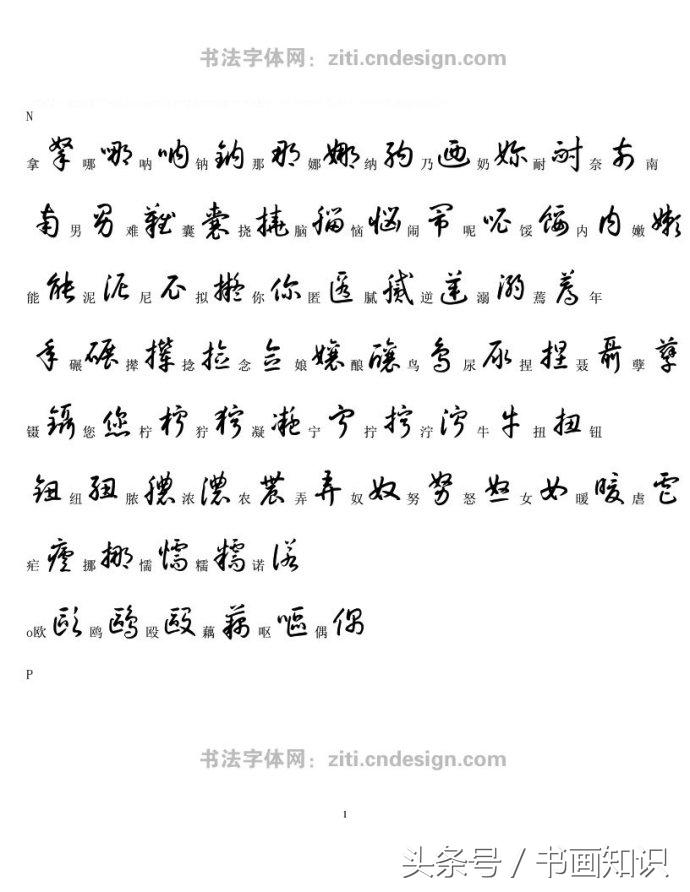 书法字体网：ziti.cndesign.com
N
拿 拏 哪 哪 呐 呐 钠 鈉 那 那 娜 娜 纳 納 乃 迺 奶 妳 耐 耐 奈 奈 南
南 男 男 难 難 囊 囊 挠 撓 脑 腦 恼 惱 闹 鬧 呢 呢 馁 餒 内 内 嫩 嫩
能 能 泥 泥 尼 尼 拟 擬 你 你 匿 匿 腻 膩 逆 逆 溺 溺 蔫 蔫 年
年 碾 碾 撵 攆 捻 捻 念 念 娘 孃 酿 釀 鸟 鳥 尿 尿 捏 捏 聂 聶 孽 孽
镊 鑷 您 您 柠 柠 狞 狞 凝 凝 宁 宁 拧 拧 泞 泞 牛 牛 扭 扭 钮
鈕 纽 紐 脓 膿 浓 濃 农 農 弄 弄 奴 奴 努 努 怒 怒 女 女 暖 暖 虐 虐
疟 瘧 挪 挪 懦 懦 糯 糯 诺 诺
o欧 歐 鸥 鷗 殴 毆 藕 藕 呕 嘔 偶 偶
P
书法字体网：ziti.cndesign.com
1
头条号 / 书画知识